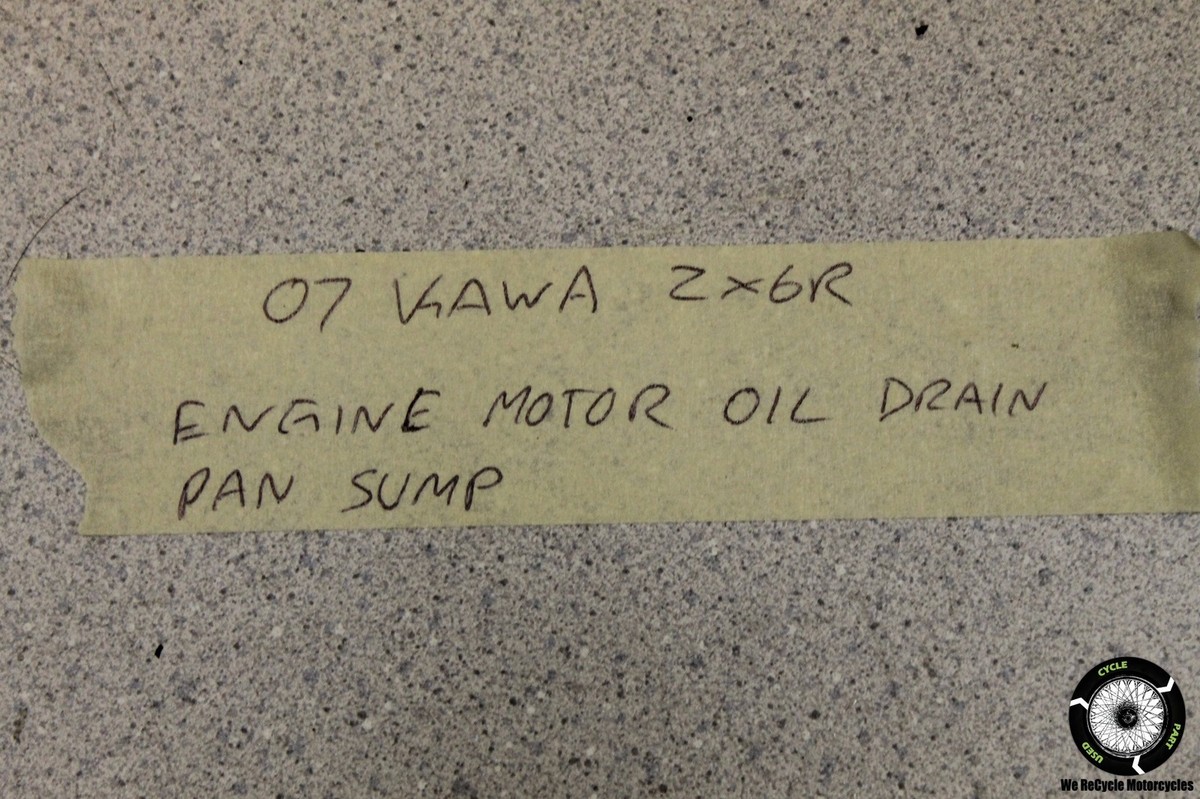 07 KAWA ZX6R
ENGINE MOTOR OIL DRAIN
PAN SUMP
CYCLE
PART
USED
We ReCycle Motorcycles